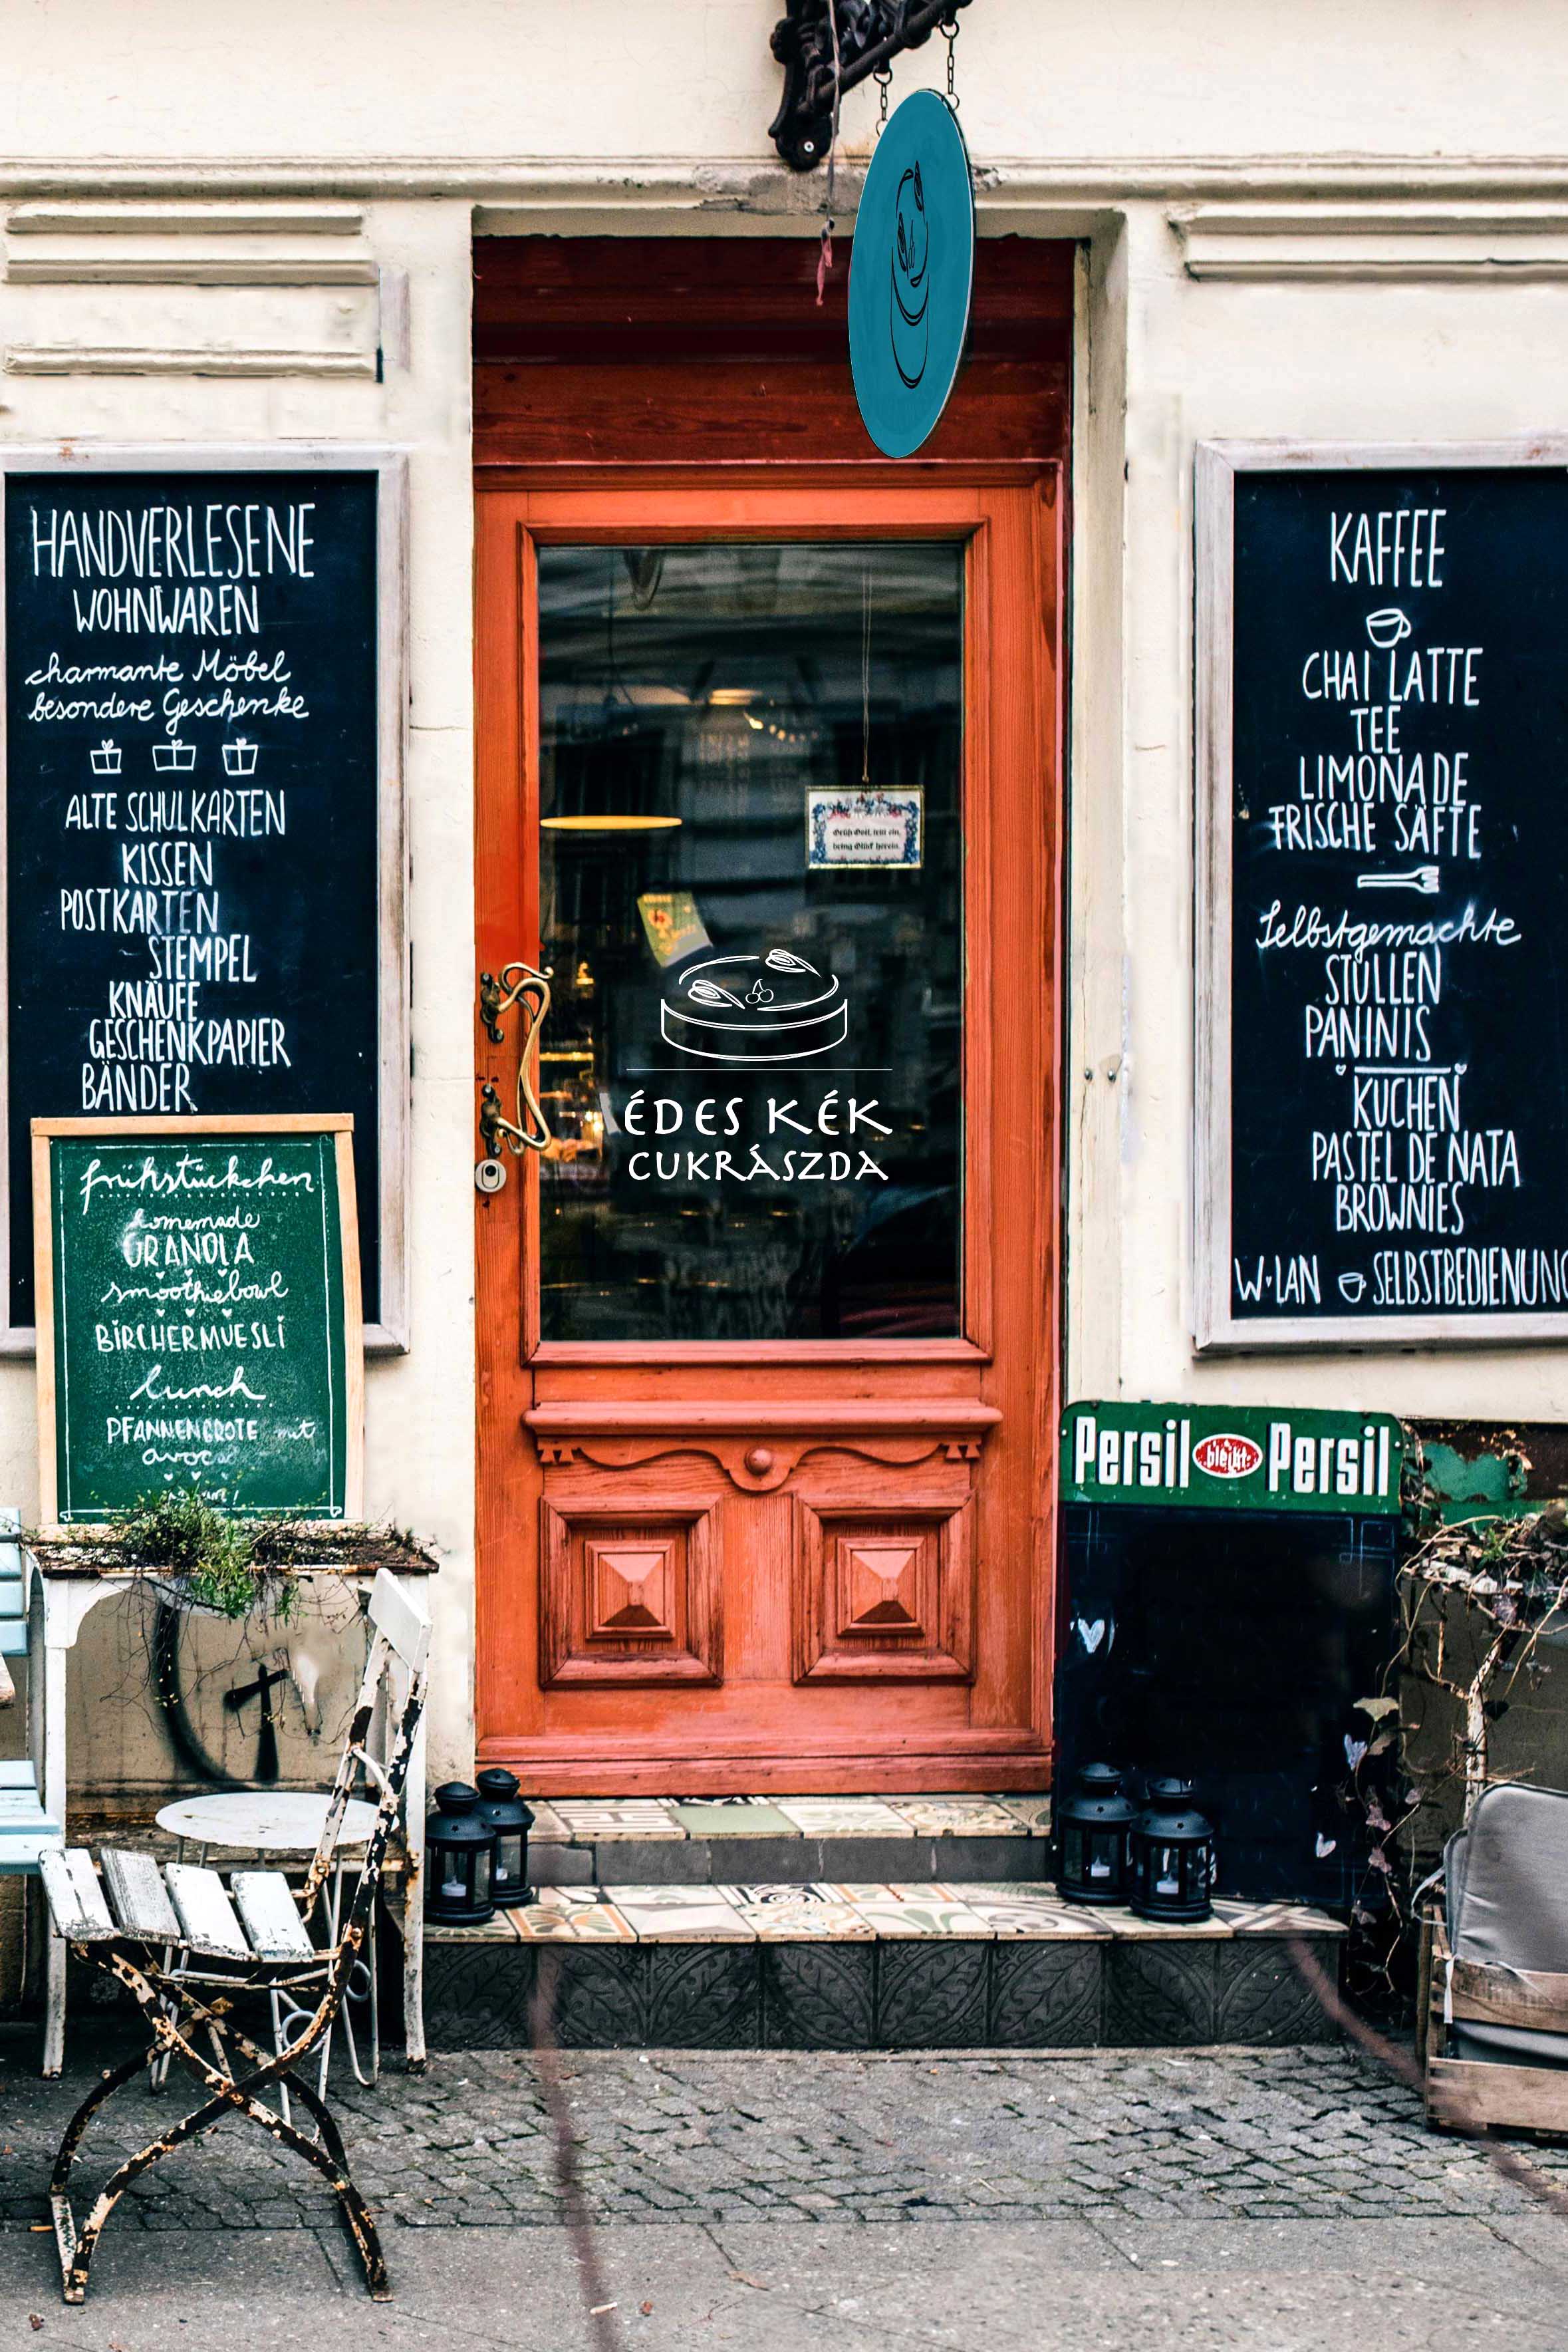 HANDVERLESENE
WOHNWAREN
charmante Möbel
besondere Geschenke
ALTE SCHULKARTEN
KISSEN
POSTKARTEN
STEMPEL
KNÄUFE
GESCHENKPAPIER
BÄNDER
frühstückchen
homemade
GRANOLA
smoothiebowl
BIRCHERMUESLI
lunch
PFANNENBROTE mit
Grüß Gott, tritt ein,
bring Glück herein.
ÉDES KÉK
CUKRÁSZDA
KAFFEE
CHAI LATTE
TEE
LIMONADE
FRISCHE SÄFTE
Selbstgemachte
STULLEN
PANINIS
KUCHEN
PASTEL DE NATA
BROWNIES
W·LAN SELBSTBEDIENUNG
Persil bleibt Persil